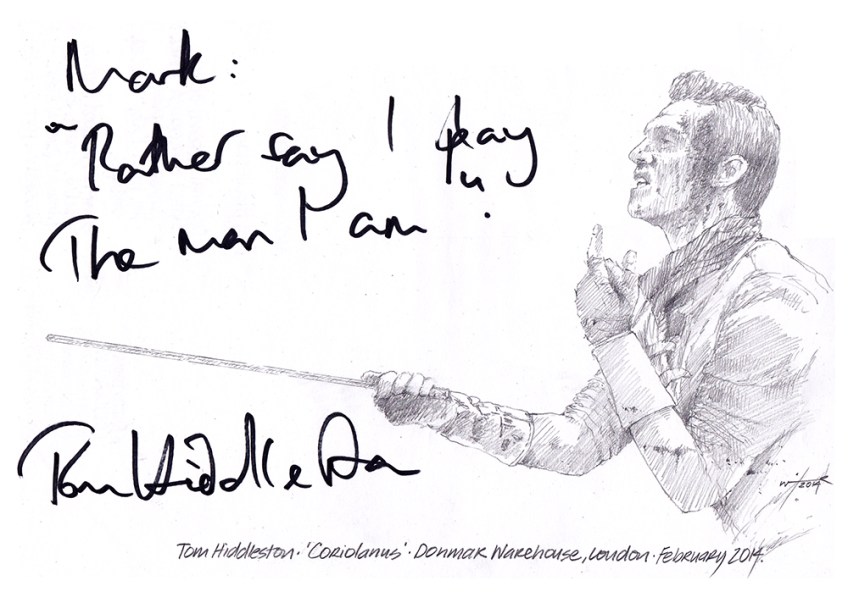 Mark:
"Rather say I play
The man I am".
Tom Hiddleston
2014
Tom Hiddleston · 'Coriolanus' · Donmar Warehouse, London · February 2014.